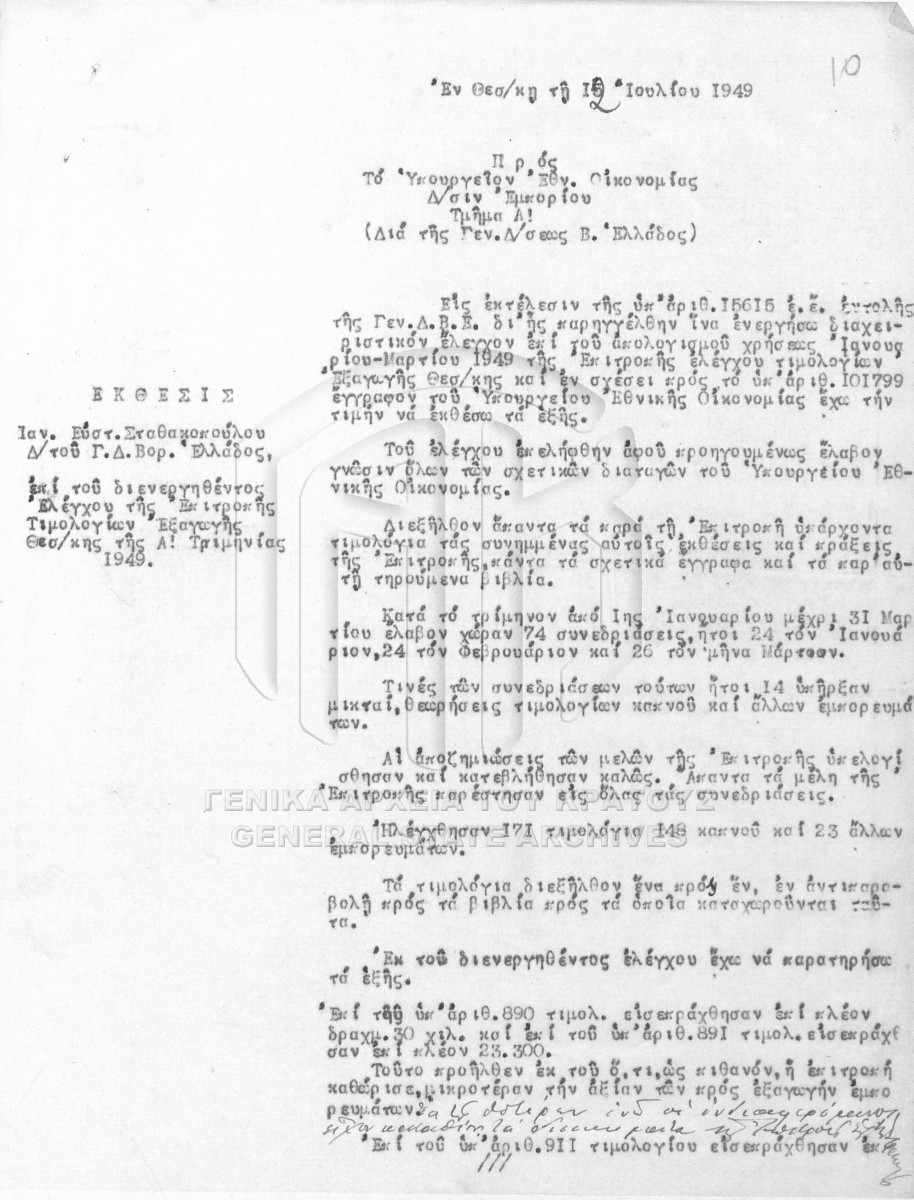 10
Ἐν Θεσ/κῃ τῇ 12 Ἰουλίου 1949
Π ρ ό ς
Τό Ὑπουργεῖον Ἐθν. Οἰκονομίας
Δ/σιν Ἐμπορίου
Τμῆμα Α!
(Διά τῆς Γεν.Δ/σεως Β. Ἑλλάδος)
Ε Κ Θ Ε Σ Ι Σ
Ἰαν. Εὐστ.Σταθακοπούλου
Δ/τοῦ Γ.Δ.Βορ. Ἑλλάδος,
ἐπί τοῦ διενεργηθέντος
Ἐλέγχου τῆς Ἐπιτροπῆς
Τιμολογίων Ἐξαγωγῆς
Θεσ/κης τῆς Α! Τριμηνίας
1949.
Εἰς ἐκτέλεσιν τῆς ὑπ'ἀριθ.15615 ἐ.ἔ. ἐντολῆς
τῆς Γεν.Δ.Β.Ε. δι'ἧς παρηγγέλθην ἵνα ἐνεργήσω διαχει-
ριστικόν ἔλεγχον ἐπί τοῦ ἀπολογισμοῦ χρήσεως Ἰανουα
ρίου-Μαρτίου 1949 τῆς Ἐπιτροπῆς ἐλέγχου τιμολογίων
Ἐξαγωγῆς Θεσ/κης καί ἐν σχέσει πρός τό ὑπ'ἀριθ.101799
ἔγγραφον τοῦ Ὑπουργείου Ἐθνικῆς Οἰκονομίας ἔχω τήν
τιμήν νά ἐκθέσω τά ἑξῆς.
Τοῦ ἐλέγχου ἐπελήφθην ἀφοῦ προηγουμένως ἔλαβον
γνῶσιν ὅλων τῶν σχετικῶν διαταγῶν τοῦ Ὑπουργείου Ἐθ-
νικῆς Οἰκονομίας.
Διεξῆλθον ἅπαντα τά παρά τῇ Ἐπιτροπῇ ὑπάρχοντα
τιμολόγια τάς συνημμένας αὐτοῖς ἐκθέσεις καί πράξεις
τῆς Ἐπιτροπῆς,πάντα τά σχετικά ἔγγραφα καί τά παρ'αὐ-
τῇ τηρούμενα βιβλία.
Κατά τό τρίμηνον ἀπό 1ης Ἰανουαρίου μέχρι 31 Μαρ
τίου ἔλαβον χώραν 74 συνεδριάσεις,ἤτοι 24 τόν Ἰανουά
ριον,24 τόν Φεβρουάριον καί 26 τόν μῆνα Μάρτιον.
Τινές τῶν συνεδριάσεων τούτων ἤτοι 14 ὑπῆρξαν
μικταί,θεωρήσεις τιμολογίων καπνοῦ καί ἄλλων ἐμπορευμά
των.
Αἱ ἀποζημιώσεις τῶν μελῶν τῆς Ἐπιτροπῆς ὑπελογί
σθησαν καί κατεβλήθησαν καλῶς. Ἅπαντα τά μέλη τῆς
Ἐπιτροπῆς παρέστησαν εἰς ὅλας τάς συνεδριάσεις.
ΓΕΝΙΚΑ ΑΡΧΕΙΑ ΤΟΥ ΚΡΑΤΟΥΣ
GENERAL STATE ARCHIVES
Ἠλέγχθησαν 171 τιμολόγια 148 καπνοῦ καί 23 ἄλλων
ἐμπορευμάτων.
Τά τιμολόγια διεξῆλθον ἕνα πρός ἕν, ἐν ἀντιπαρα-
βολῇ πρός τά βιβλία πρός τά ὁποῖα καταχωροῦνται ταῦ-
τα.
Ἐκ τοῦ διενεργηθέντος ἐλέγχου ἔχω νά παρατηρήσω
τά ἑξῆς.
Ἐπί τοῦ ὑπ'ἀριθ.890 τιμολ. εἰσεπράχθησαν ἐπί πλέον
δραχμ.30 χιλ. καί ἐπί τοῦ ὑπ'ἀριθ.891 τιμολ.εἰσεπράχθ
σαν ἐπί πλέον 23.300.
Τοῦτο προῆλθεν ἐκ τοῦ ὅ,τι,ὡς πιθανόν,ἡ ἐπιτροπή
καθώρισε,μικροτέραν τήν ἀξίαν τῶν πρός ἐξαγωγήν ἐμπο
ρευμάτων
Ἐπί τοῦ ὑπ'ἀριθ.911 τιμολογίου εἰσεπράχθησαν ἐπ